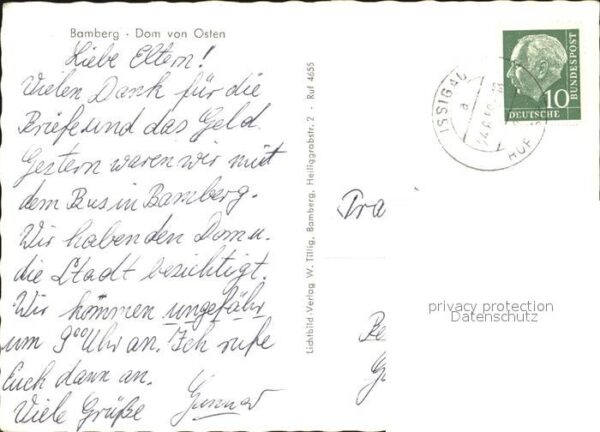 Bamberg - Dom von Osten
Liebe Eltern!
Vielen Dank für die
Briefe und das Geld.
Gestern waren wir mit
dem Bus in Bamberg.
Wir haben den Dom u.
die Stadt besichtigt.
Wir kommen ungefähr
um 9⁰⁰ Uhr an. Ich rufe
Euch dann an.
Viele Grüße Gunnar
Lichtbild-Verlag W. Tillig, Bamberg, Heiliggrabstr. 2 · Ruf 4655
ISSIGAU
a
HOF
10
DEUTSCHE
BUNDESPOST
privacy protection
Datenschutz